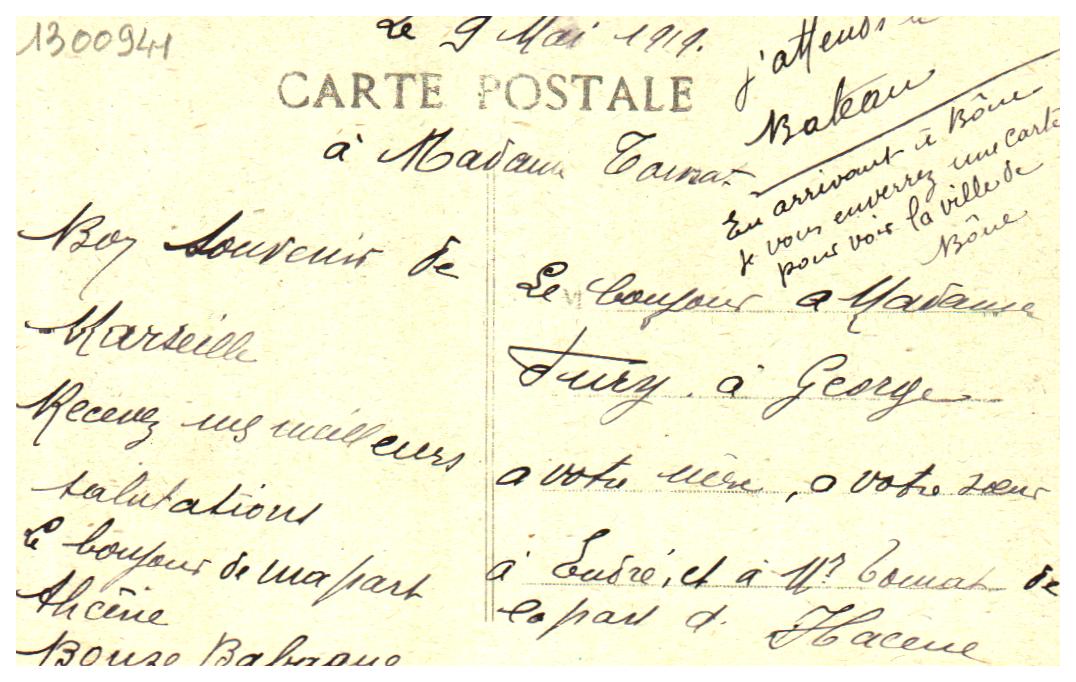 1300941
Le 9 Mai 1919.
CARTE POSTALE
à Madame Tournat
Bon Souvenir de
Marseille
Recevez mes meilleurs
salutations
Le bonjour de ma part
Ahcène
Bouze
j'attends
Bateau
En arrivant à Bône
je vous enverrez une carte
pour voir la ville de
Bône
Le bonjour a Madame
Fury. à George
a votre mère, a votre soeur
à et à Mr Tournat de
la part d. Hacène